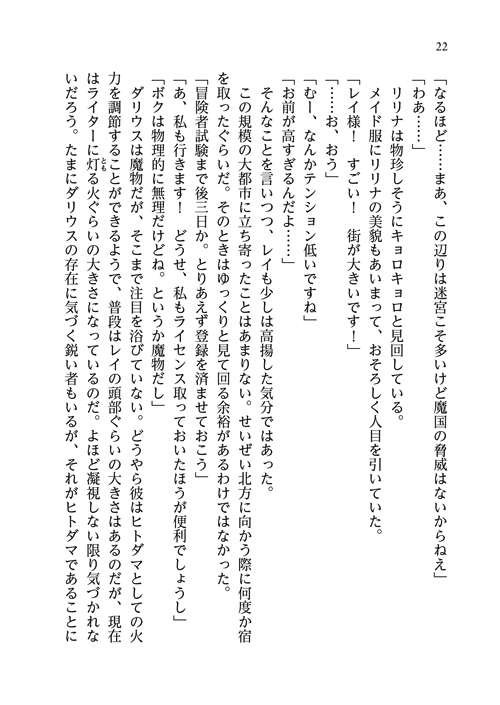 22
「なるほど……まあ、この辺りは迷宮こそ多いけど魔国の脅威はないからねえ」
「わあ……」
リリナは物珍しそうにキョロキョロと見回している。
メイド服にリリナの美貌もあいまって、おそろしく人目を引いていた。
「レイ様！　すごい！　街が大きいです！」
「……お、おう」
「むー、なんかテンション低いですね」
「お前が高すぎるんだよ……」
そんなことを言いつつ、レイも少しは高揚した気分ではあった。
この規模の大都市に立ち寄ったことはあまりない。せいぜい北方に向かう際に何度か宿
を取ったぐらいだ。そのときはゆっくりと見て回る余裕があるわけではなかった。
「冒険者試験まで後三日か。とりあえず登録を済ませておこう」
「あ、私も行きます！　どうせ、私もライセンス取っておいたほうが便利でしょうし」
「ボクは物理的に無理だけどね。というか魔物だし」
ダリウスは魔物だが、そこまで注目を浴びていない。どうやら彼はヒトダマとしての火
力を調節することができるようで、普段はレイの頭部ぐらいの大きさはあるのだが、現在
はライターに灯る火ぐらいの大きさになっているのだ。よほど凝視しない限り気づかれな
いだろう。たまにダリウスの存在に気づく鋭い者もいるが、それがヒトダマであることに
とも